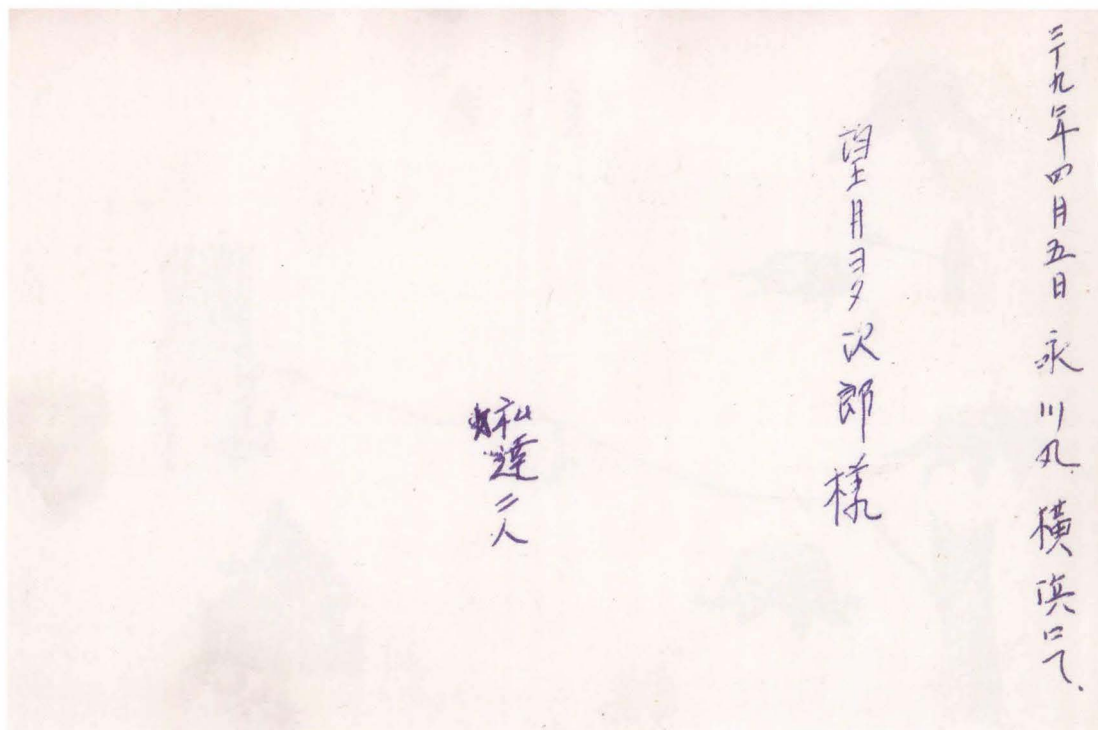 三十九年四月五日 永川丸 横浜にて、
望月多次郎様
私達二人